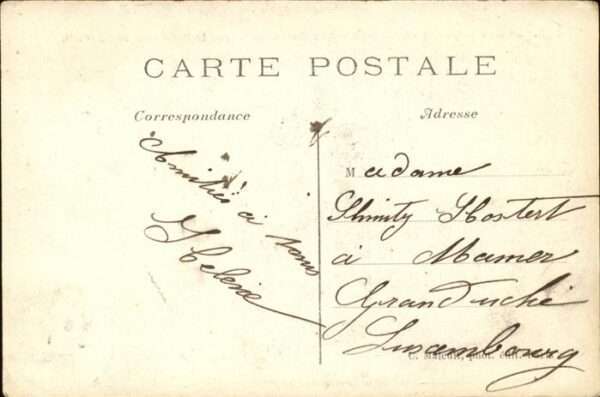 CARTE POSTALE
Correspondance
Adresse
Amitiés à tous
Helene
Madame
Hostert
à Mamer
Grand Duché
Luxembourg